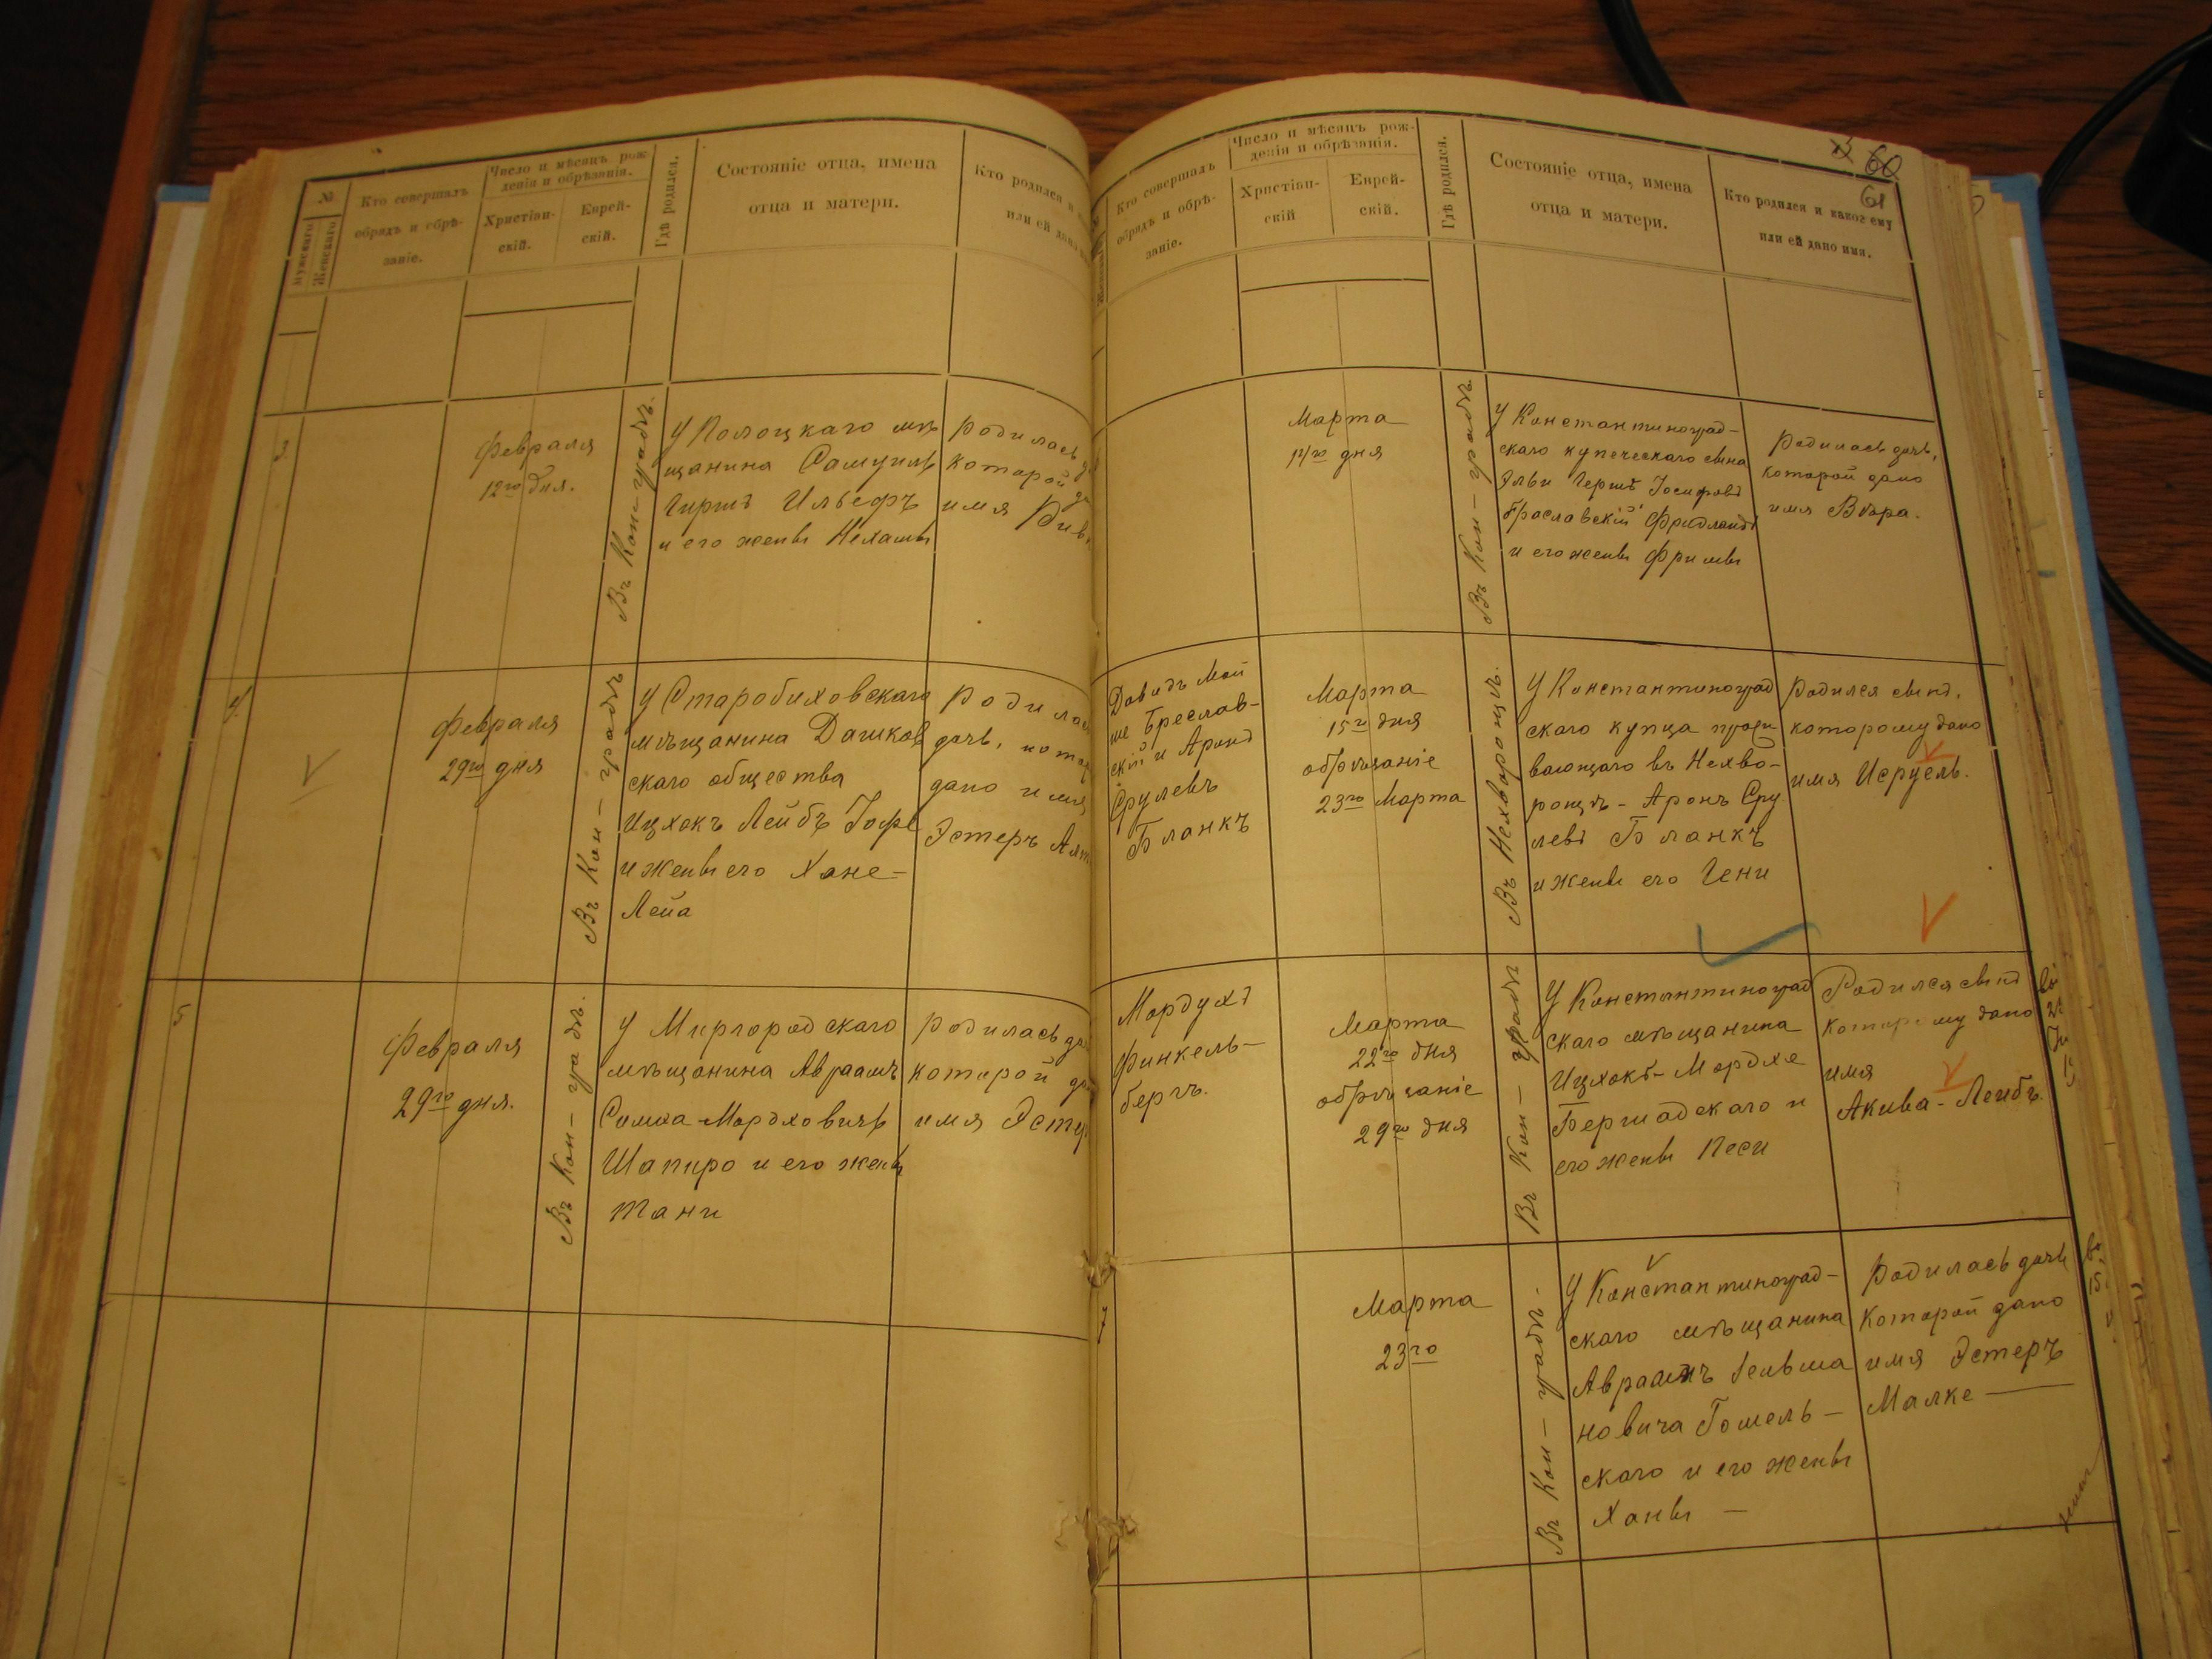 №
Мужскаго
Женскаго
Кто совершалъ
обрядъ и обрѣ-
заніе.
Число и мѣсяцъ рож-
денія и обрѣзанія.
Христіан-
скій.
Еврей-
скій.
Гдѣ родился.
Состояніе отца, имена
отца и матери.
Кто родился и
или ей дано
3.
Февраля
12го дня.
Въ Кон-градѣ.
У Полоцкаго мѣ
щанина Самуилъ
Гиршъ Ильефъ
и его жены Нехамы
родилась
которой
имя
4.
Февраля
29го дня
Въ Кон-градѣ
У Старобиховскаго
мѣщанина Дашков
скаго общества
Ицхокъ Лейбъ
и жены его Хане-
Лейа
роди
дочь,
дано имя
Эстеръ
5
Февраля
29го дня.
Въ Кон-градѣ.
У Миргородскаго
мѣщанина Авраамъ
Симха-Мордховичъ
Шапиро и его жены
Тани
родилась
которой
имя
60
61
Кто совершалъ
обрядъ и обрѣ-
заніе.
Число и мѣсяцъ рож-
денія и обрѣзанія.
Христіан-
скій
Еврей-
скій.
Гдѣ родился.
Состояніе отца, имена
отца и матери.
Кто родился и какое ему
или ей дано имя.
Марта
дня
Въ Кон-градѣ
У Константиноград-
скаго купеческаго сына
Эльи Гершъ Іосифовъ
Браславскій Фридландъ
и его жены Фримы
Родилась дочь,
которой дано
имя Вѣра.
Давидъ Мой
ше Бреслав-
скій и Аронъ
Срулевъ
Бланкъ
Марта
15го дня
обрѣзаніе
23го Марта
Въ Нехворощѣ.
У Константиноград
скаго купца прожи
вающаго въ Нехво-
рощѣ - Аронъ Сру
левъ Бланкъ
и жены его Гени
родился сынъ,
которому дано
имя Исруель.
Мордухъ
Финкель-
бергъ.
Марта
22го дня
обрѣзаніе
29го дня
Въ Кон-градѣ
У Константиноград
скаго мѣщанина
Ицхокъ-Мордхе
Бершадскаго и
его жены Песи
Родился сынъ
которому дано
имя
Акива-Лейбъ.
7
Марта
23го
Въ Кон-градѣ.
У Константиноград-
скаго мѣщанина
Авраамъ
новича Гомель-
скаго и его жены
Ханы -
родилась дочь
которой дано
имя Эстеръ
Малке